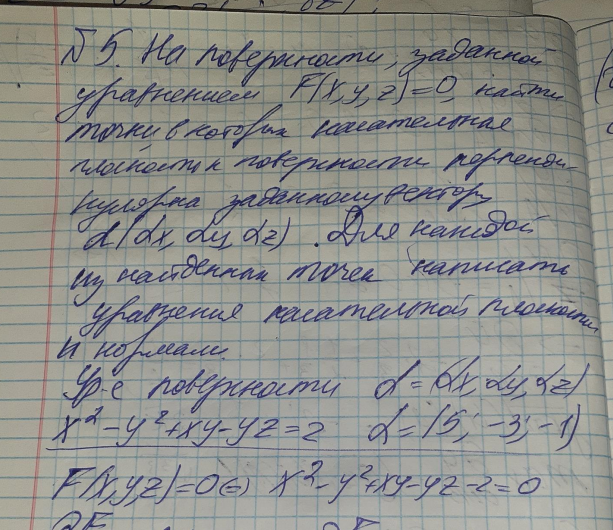 №5. На поверхности, заданной
уравнением F(x,y,z)=0, найти
точки в которых касательная
плоскость к поверхности перпенди-
кулярна заданному вектору
α(αx, αy, αz). Для каждой
из найденных точек написать
уравнения касательной плоскости
и нормали.
Ур-е поверхности α=(αx, αy, αz)
x²-y²+xy-yz=2 α=(5; -3; -1)
F(x,y,z)=0 ⇔ x²-y²+xy-yz-2=0